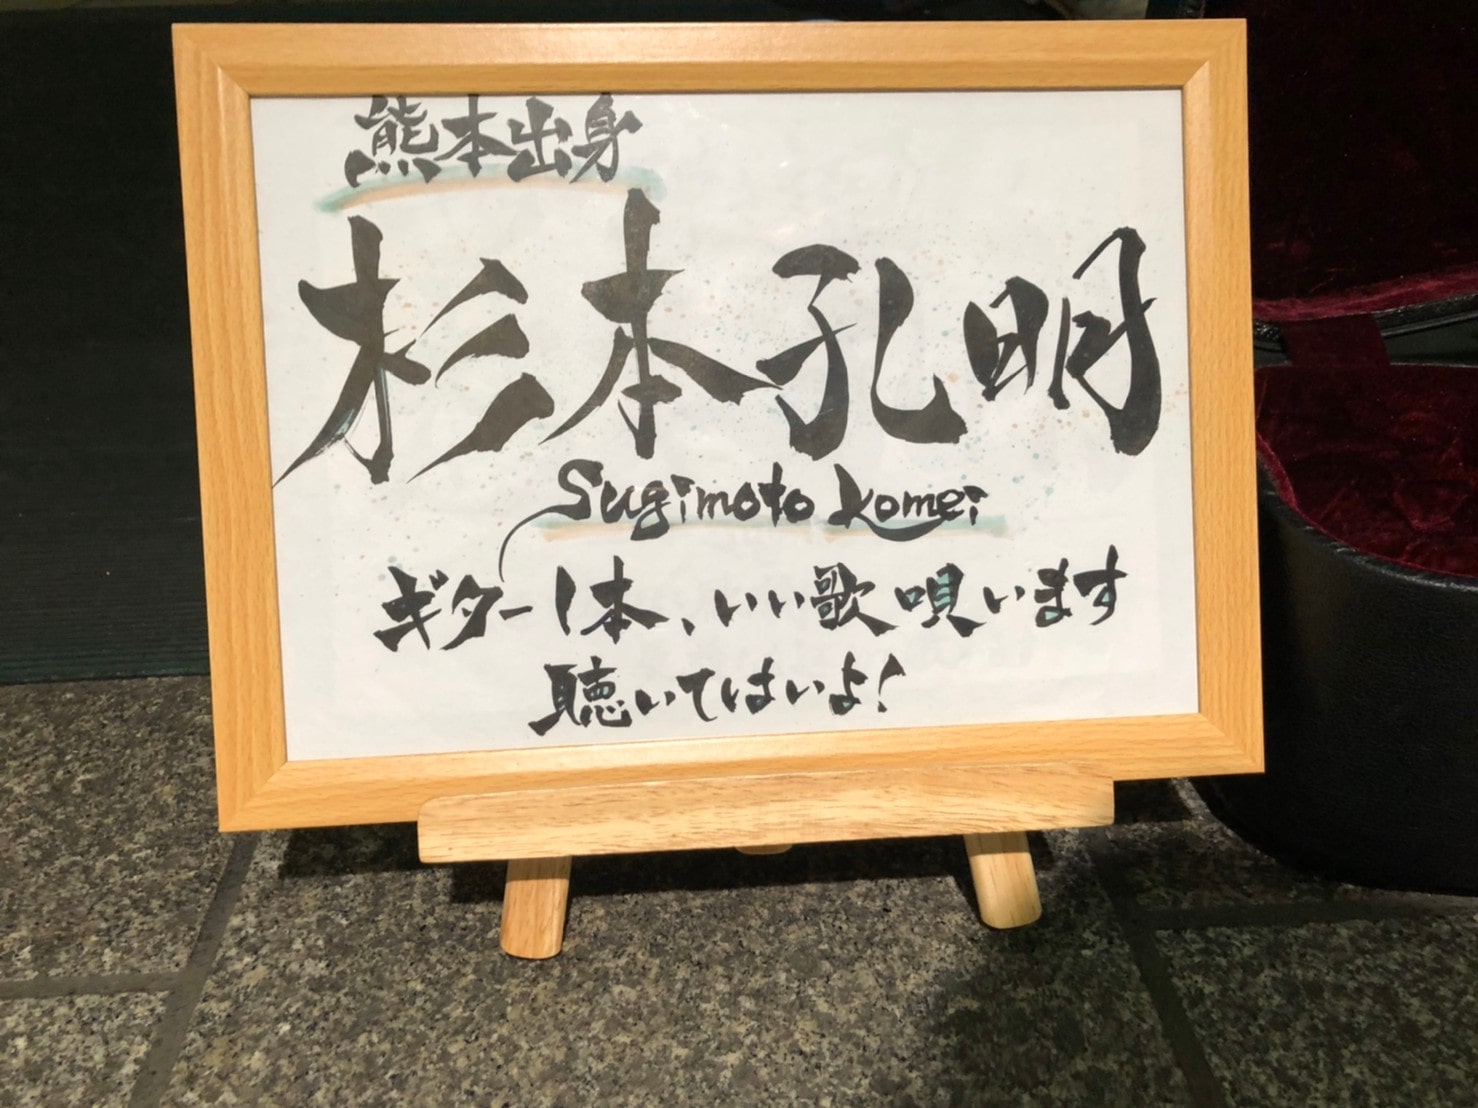 熊本出身
杉本孔明
Sugimoto Komei
ギター1本、いい歌唄います
聴いてはいよ!